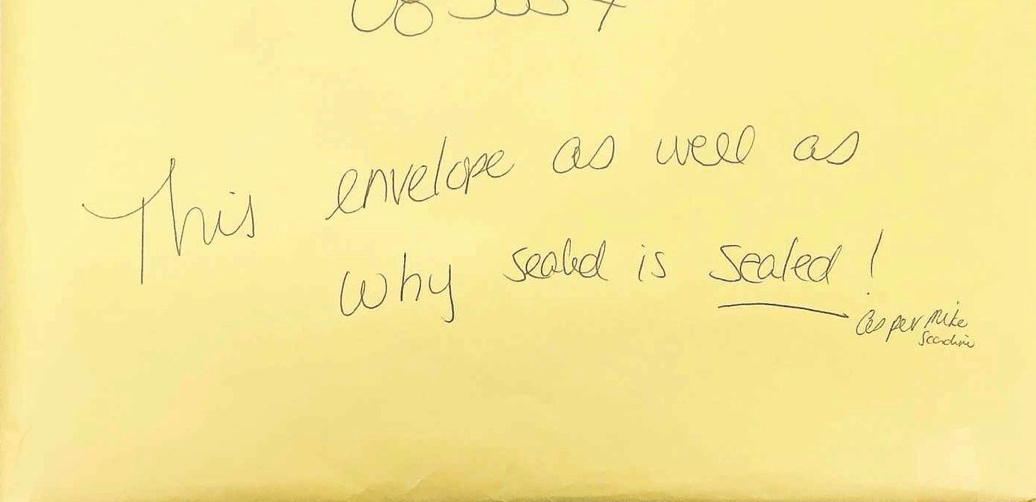 This envelope as well as
why sealed is sealed!
as per Mike